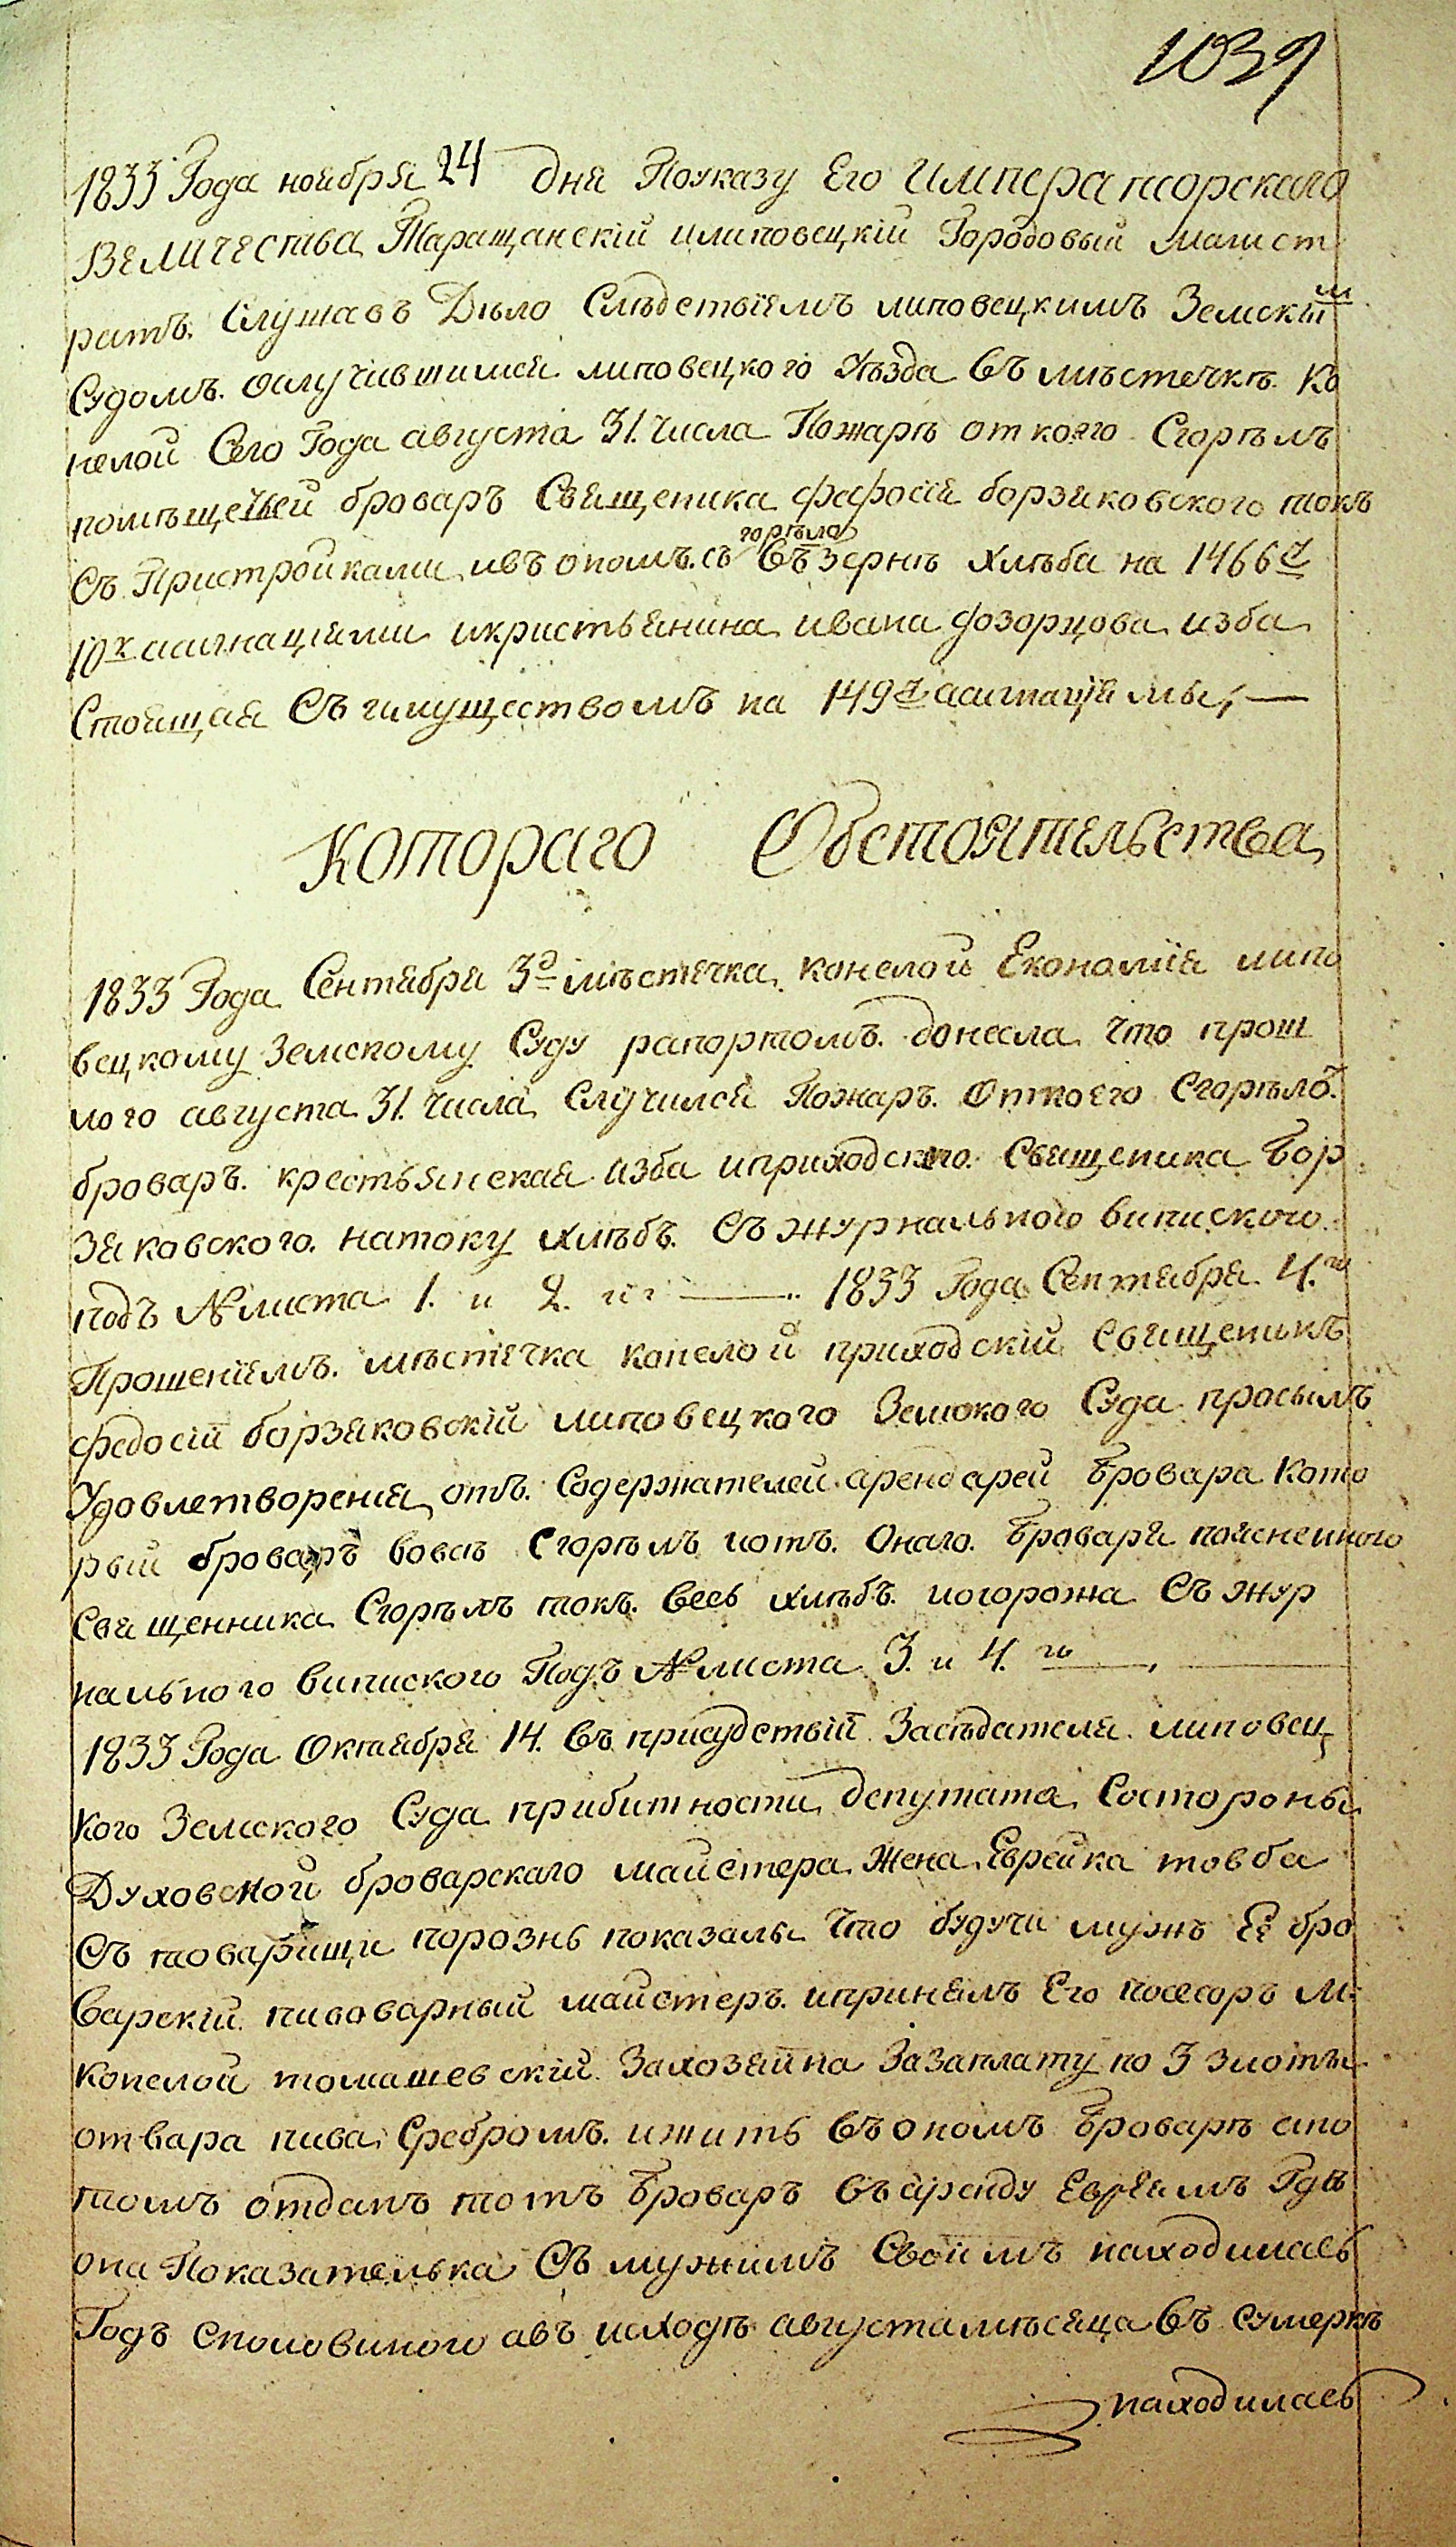 1039
1833 Года ноября 24 дня Поуказу Его Императорскаго
Величества Таращанскій илиповецкій Городовый магист
ратъ. Слушавъ Дѣло Слѣдствіемъ липовецкимъ Земскім
Судомъ. ослучившимся липовецкого уѣзда въ мѣстечкѣ. Ко
нелой Сего Года августа 31. Числа Пожарѣ от коего Сгорѣлъ
помѣщечьей броваръ Священика фафосія борзяковского токъ
Съ Пристройками ивъ ономъ. съ горѣло въ зернѣ хлѣба на 1466 р
10 к асигнаціями икристьянина ивана фозорцова изба
Стоящая Съ имуществомъ на 149 р асигнаціямы, —
Котораго Обстоятельства
1833 Года Сентября 3 д мѣстечка конелой Економія липо
вецкому Земскому Суду рапортомъ. донесла что прош
лого августа 31. Числа Случился Пожаръ. Откоего Сгорѣло.
броваръ. крестьянская изба иприходского. Священика Бор
зяковского. натоку хлѣбъ. Съ журнального випиского.
подъ № листа 1. и 2. — 1833 Года Сентября 4. го
Прошеніемъ. мѣстечка конелой приходскій Священикъ
федосій борзяковскій липовецкого Земского Суда просылъ
Удовлетворенія отъ. Содержателей арендарей Бровара Кото
рый броваръ вовсѣ Сгорѣлъ иотъ. Онаго. Броваря поясненного
Священника Сгорѣлъ токъ. весь хлѣбъ. иогорожа Съ жур
нального випиского Подъ № листа 3. и 4. го —
1833 Года Октября 14. въ присудствій Засѣдателя. липовец
кого Земского Суда прибитности депутата Состороны
Духовной броварскаго майстера Жена Еврейка товба
Съ товарищи порознь показалы что будучи мужъ Её бро
варскій пивоварный майстеръ. ипринялъ Его посесоръ М:
Конелой томашевскій Захозяина Зазаплату по 3 злоты
отвара пива Сребромъ. ижить въ ономъ Броварѣ апо
томъ отданъ тотъ Броваръ въ аренду Евреямъ Гдѣ
она Показателька Съ мужимъ Своимъ находилась
Годъ Споловиного авъ исходѣ августамѣсяца въ сумеркѣ
находилась